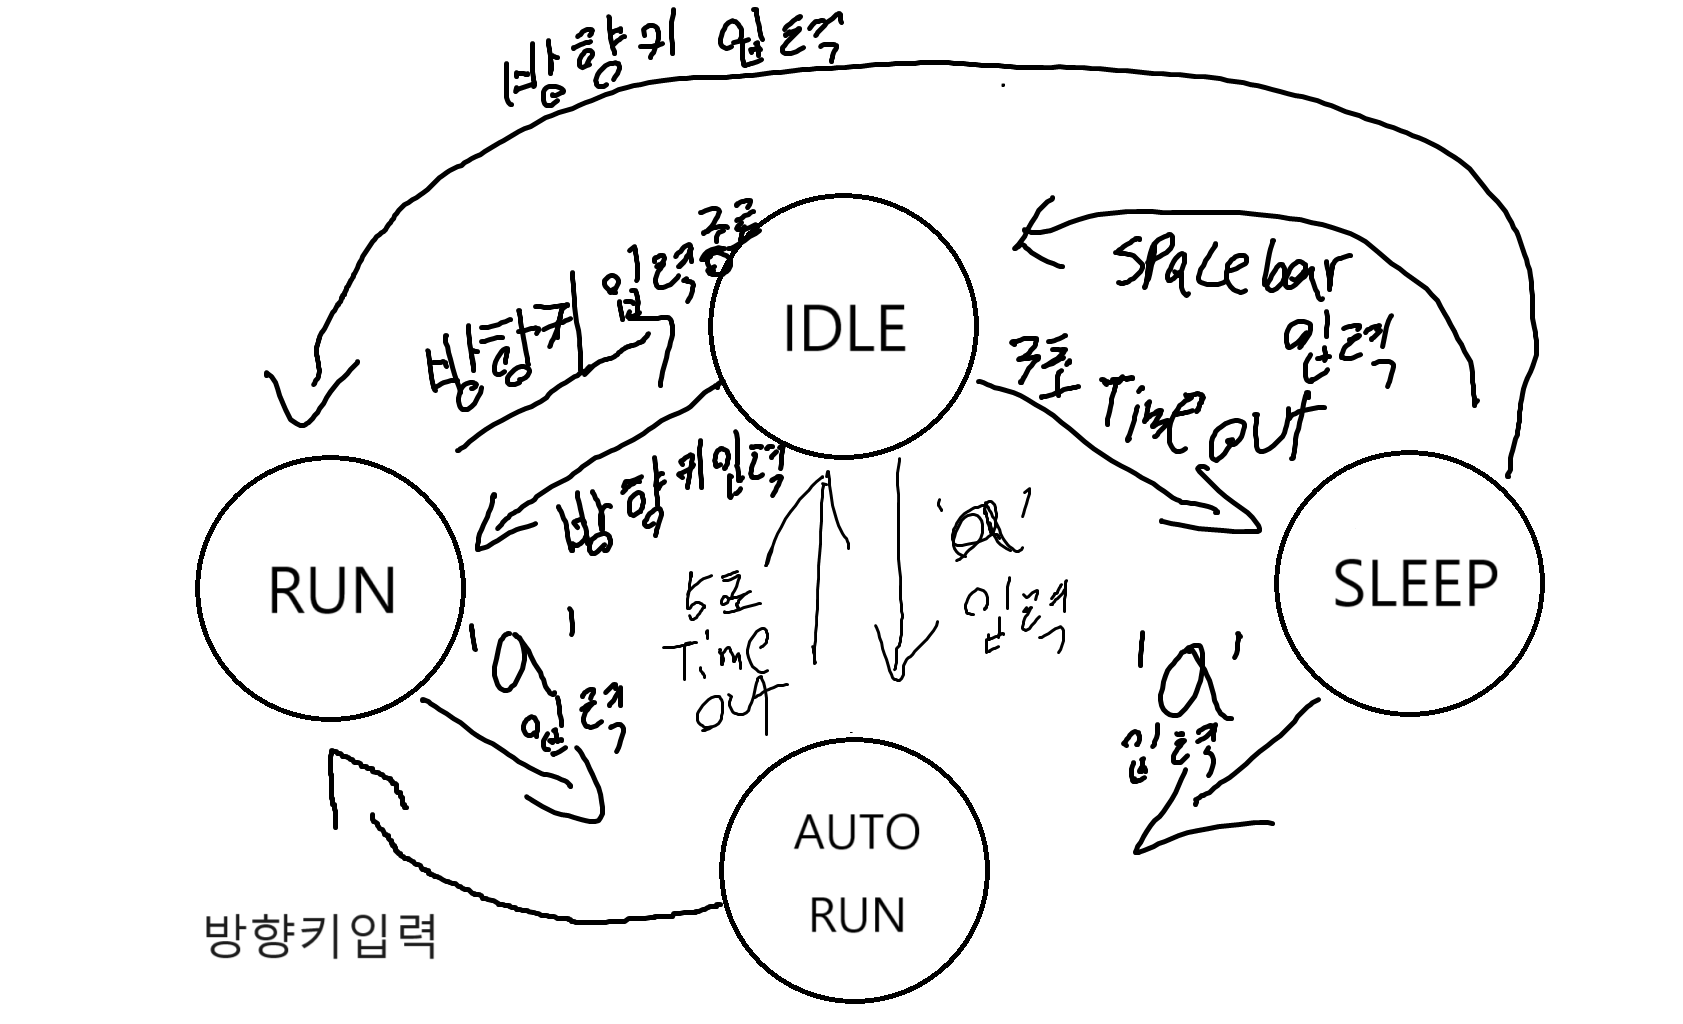 방향키 입력
방향키 입력종료
IDLE
Spacebar
입력
3초
Time
out
방향키입력
RUN
'a'
입력
5초
Time
out
'a'
입력
SLEEP
'a'
입력
AUTO
RUN
방향키입력